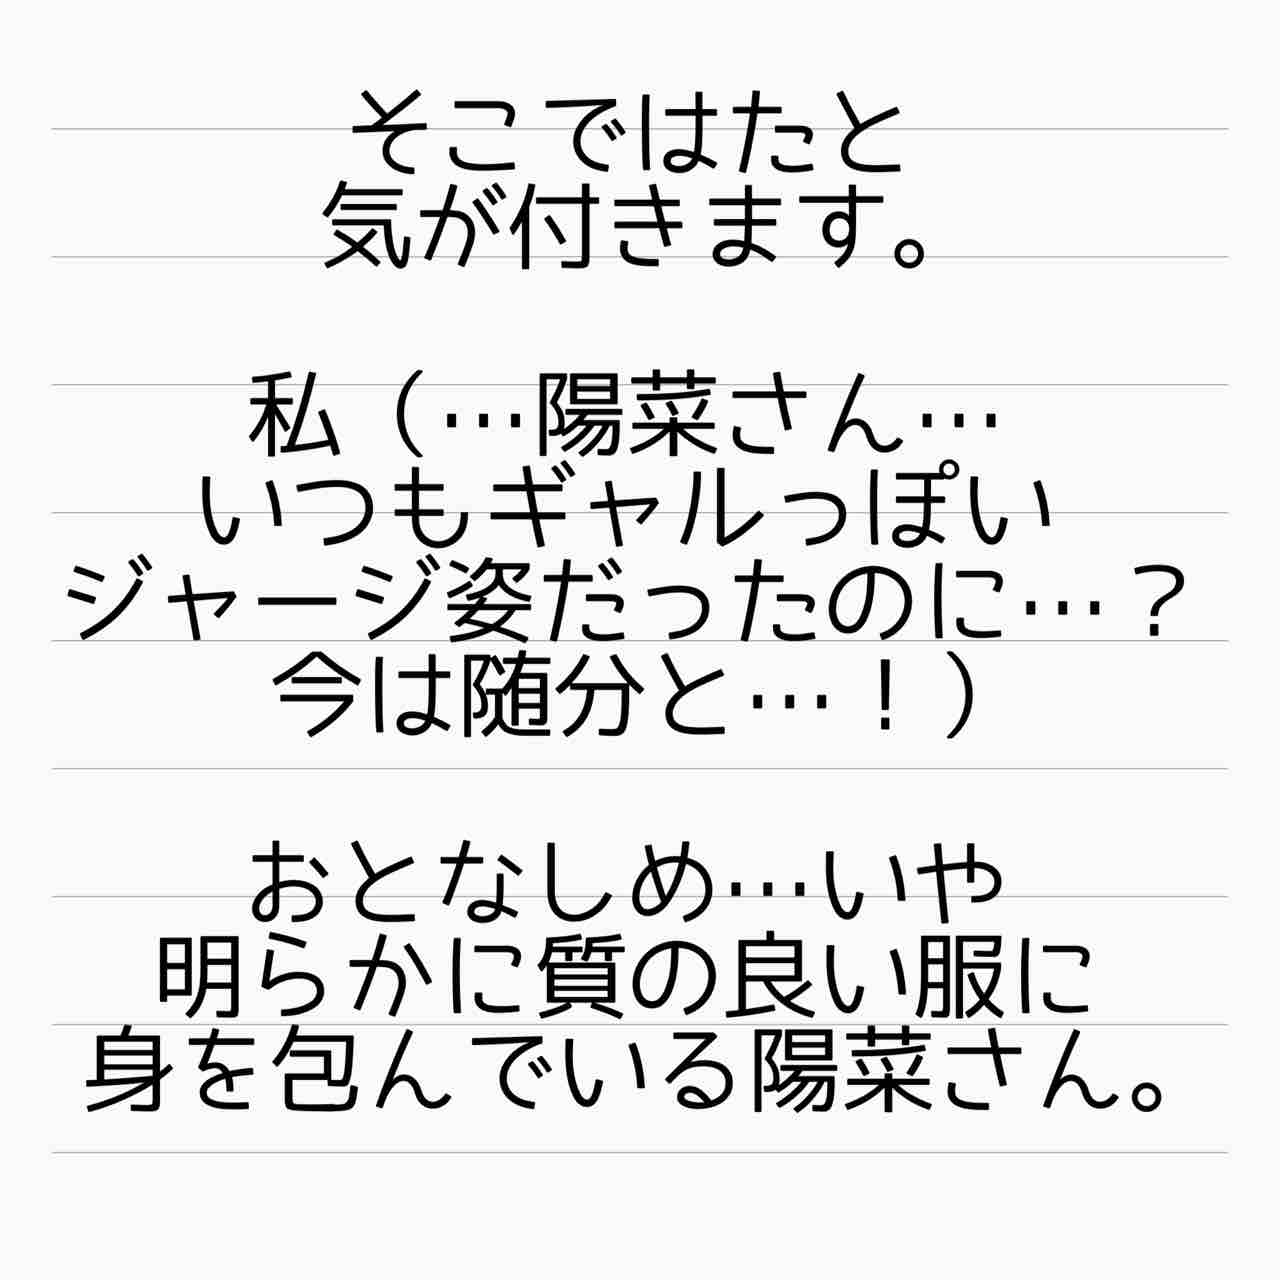 そこではたと
気が付きます。
私（…陽菜さん…
いつもギャルっぽい
ジャージ姿だったのに…？
今は随分と…！）
おとなしめ…いや
明らかに質の良い服に
身を包んでいる陽菜さん。